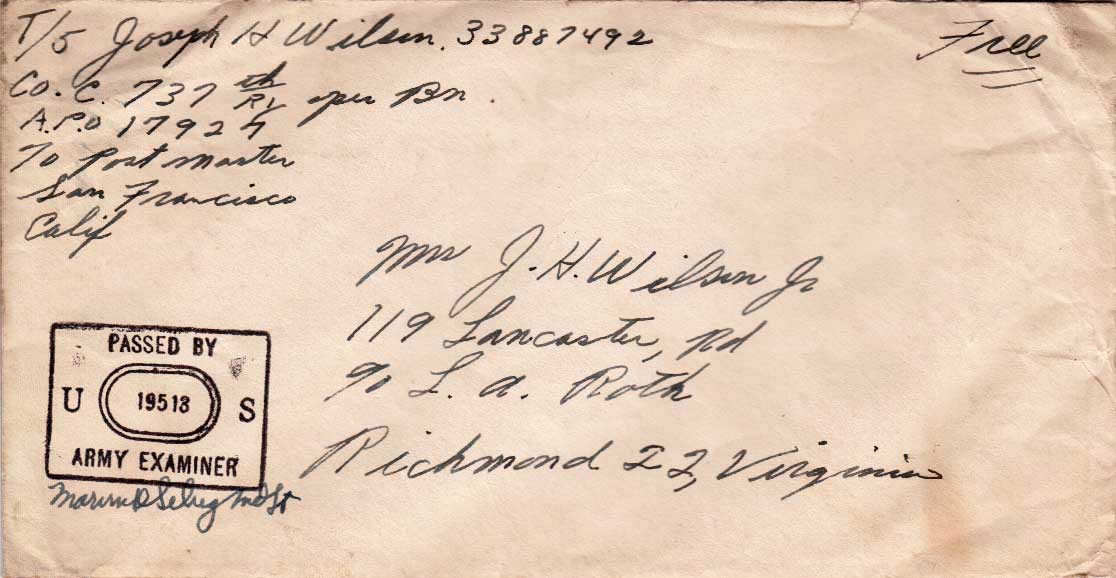 T/5 Joseph H Wilson. 33887492
Free
Co. C. 737th Ry oper Bn
A.P.O 17924
c/o Postmaster
San Francisco
Calif
Mrs J. H. Wilson Jr
119 Lancaster, Rd
c/o L. A. Roth
Richmond 22, Virginia
PASSED BY
U 19513 S
ARMY EXAMINER